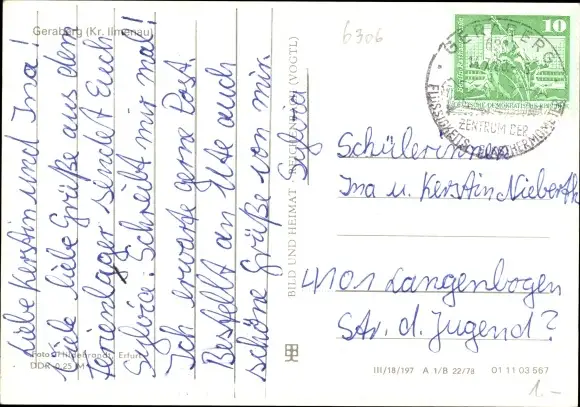 Geraberg (Kr. Ilmenau)
Liebe Kerstin und Ina!
Viele liebe Grüße aus dem
Ferienlager sendet Euch
Sylvia. Schreibt mir mal!
Ich erwarte gerne Post.
Bestellt an Ute auch
schöne Grüße von mir.
Sylvia
Foto: Hildebrandt, Erfurt
DDR 0,25 M
BILD UND HEIMAT REICHENBACH (VOGTL)
6306
10
DEUTSCHE DEMOKRATISCHE
GERABERG
ZENTRUM DER
Schülerinnen
Ina u. Kerstin Nieberth
4101 Langenbogen
Str. d. Jugend?
III/18/197 A 1/B 22/78 01 11 03 567
1.-